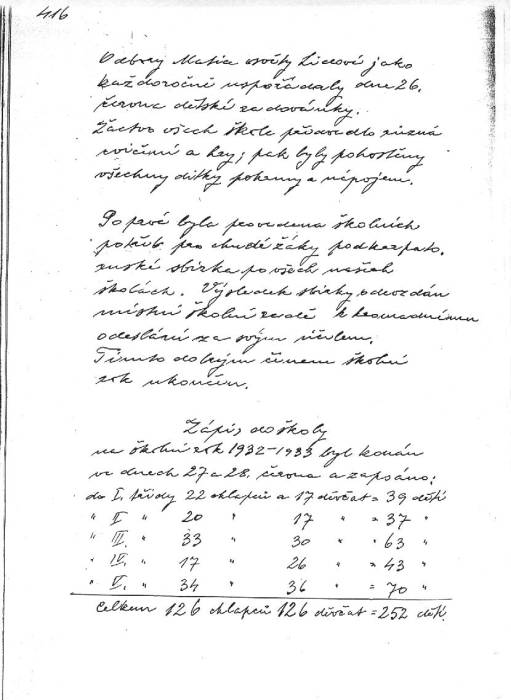 416
Odbory Matice osvěty Lidové jako
každoročně uspořádaly dne 26.
června dětské radovánky.
Žactvo všech škol předvedlo různá
cvičení a hry; pak byly pohoštěny
všechny dítky pokrmy a nápojem.
Po prvé byla provedena školních
potřeb pro chudé žáky podkarpato.
ruské sbírka po všech našich
školách. Výsledek sbírky odevzdán
místní školní radě k hromadnému
odeslání za svým účelem.
Tímto dobrým činem školní
rok ukončen.
Zápis do školy
na školní rok 1932-1933 byl konán
ve dnech 27 a 28. června a zapsáno:
do I. třídy 22 chlapců a 17 děvčat = 39 dětí
" II " 20 " 17 " = 37 "
" III. " 33 " 30 " " 63 "
" IV. " 17 " 26 " = 43 "
" V. " 34 " 36 " = 70 "
Celkem 126 chlapců 126 děvčat = 252 dětí.